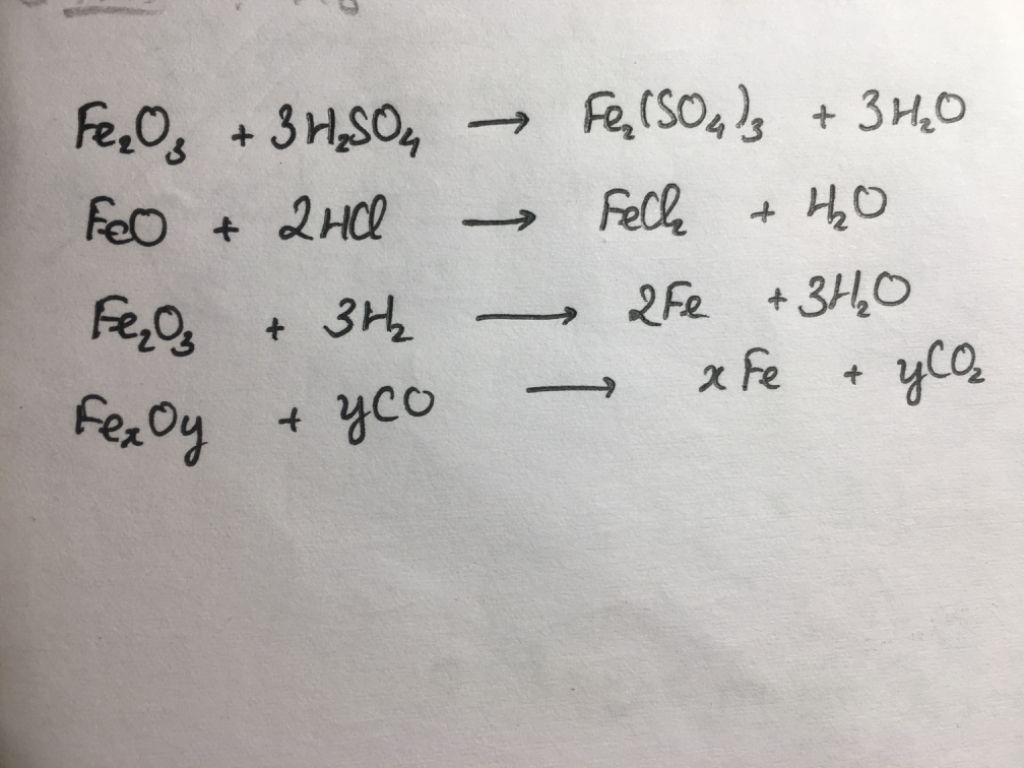 Fe₂O₃ + 3H₂SO₄ → Fe₂(SO₄)₃ + 3H₂O
FeO + 2HCl → FeCl₂ + H₂O
Fe₂O₃ + 3H₂ → 2Fe + 3H₂O
FeₓOy + yCO → xFe + yCO₂